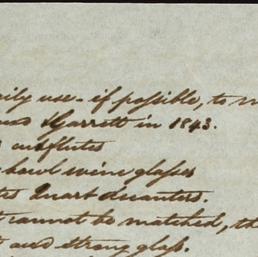 ily use - if possible, to m
Garrett in 1843.
bowl wine glasses
Quart decanters.
cannot be matched, th
and strong glass.